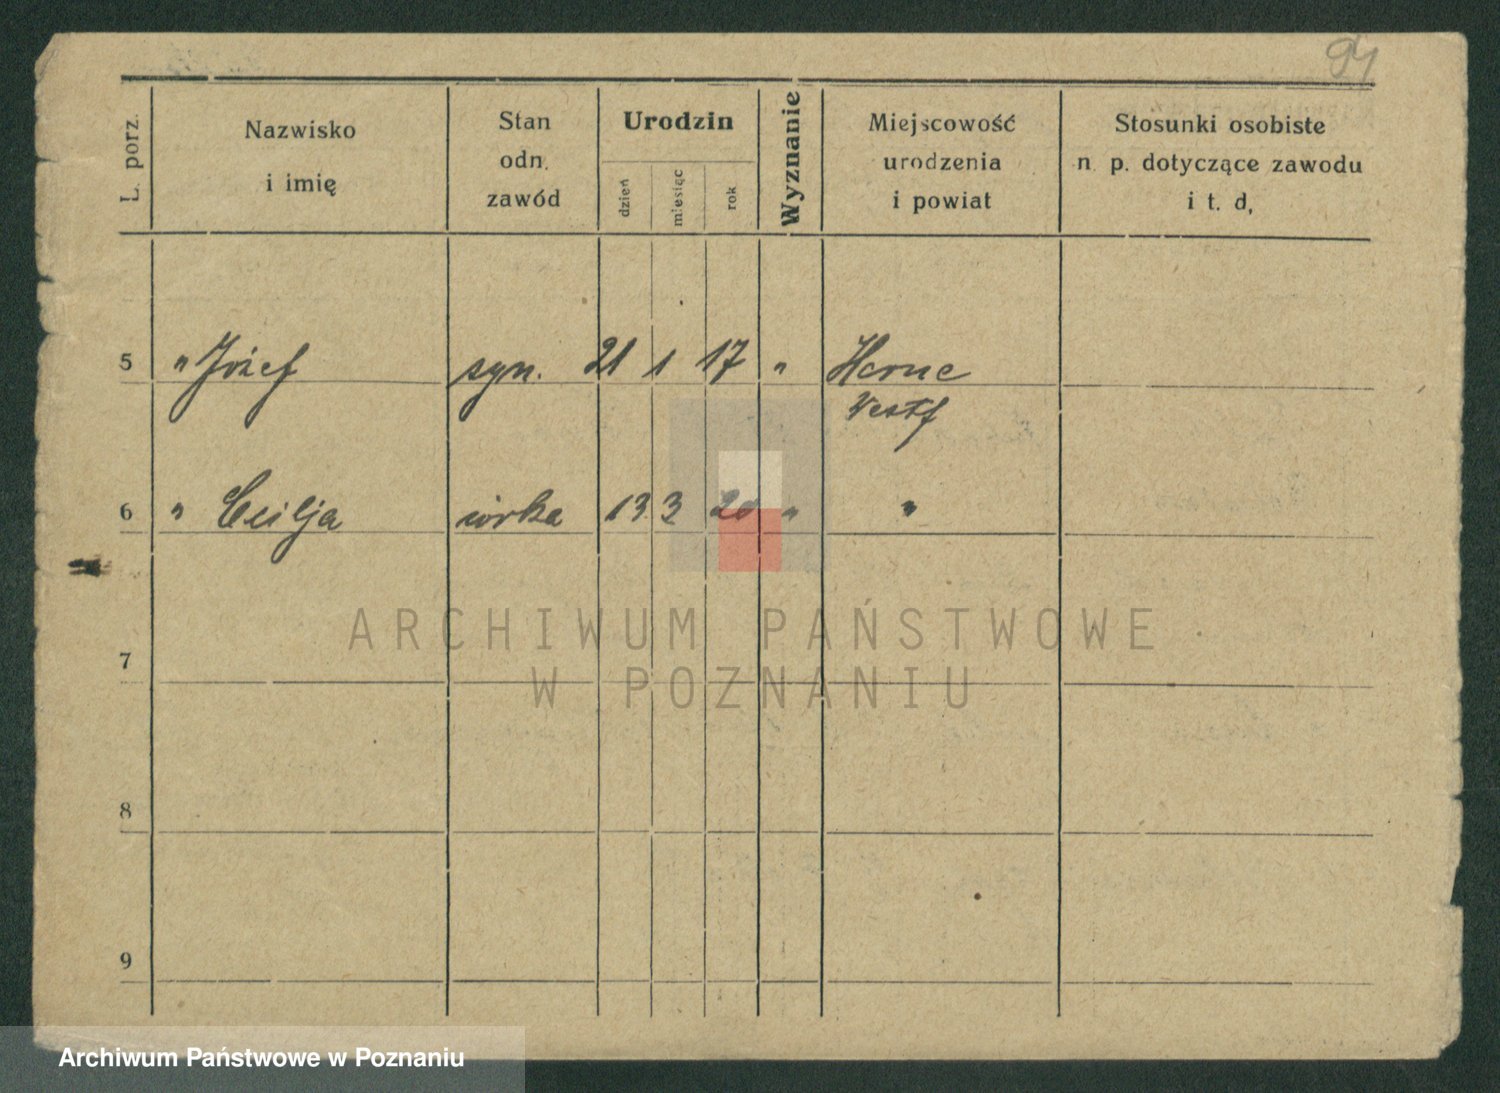 94
L. porz.
Nazwisko
i imię
Stan
odn.
zawód
Urodzin
dzień
miesiąc
rok
Wyznanie
Miejscowość
urodzenia
i powiat
Stosunki osobiste
n. p. dotyczące zawodu
i t. d.
5 " Józef syn. 21 1 17 " Herne
Westf
6 " Cecilja córka 13 3 20 " "
ARCHIWUM PAŃSTWOWE
W POZNANIU
7
8
9
Archiwum Państwowe w Poznaniu